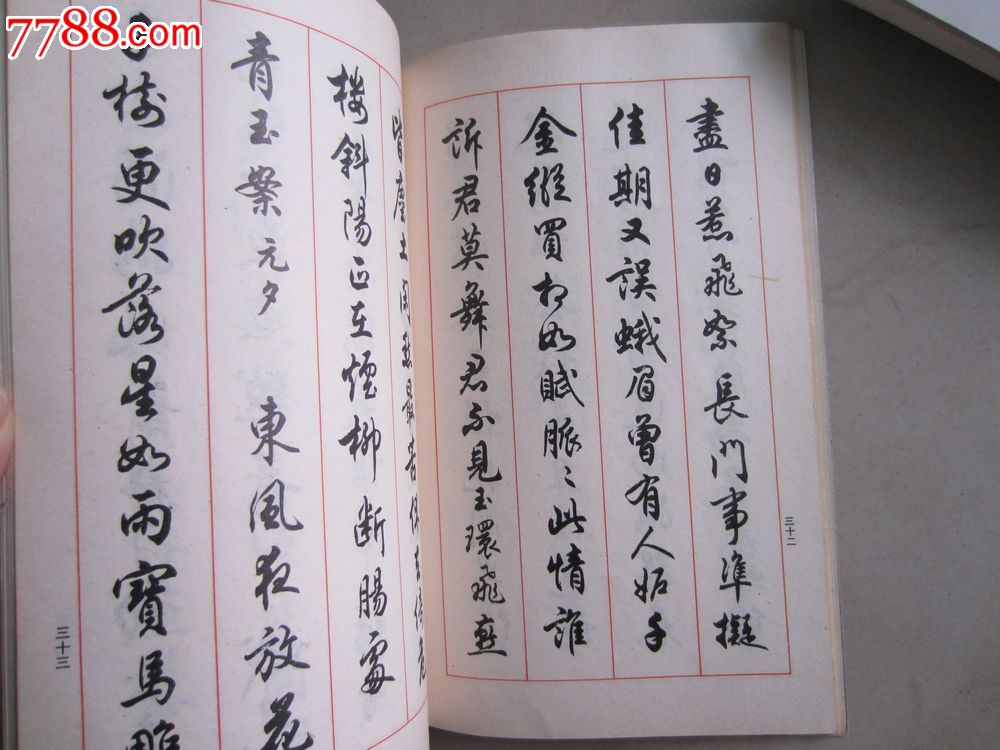 7788.com
盡日惹飛絮長門事準擬
佳期又誤蛾眉曾有人妬千
金縱買相如賦脈〻此情誰
訴君莫舞君不見玉環飛燕
三十二
皆塵土閑愁最苦休去倚危
樓斜陽正在煙柳斷腸處
青玉案元夕 東風夜放花
樹更吹落星如雨寶馬
三十三